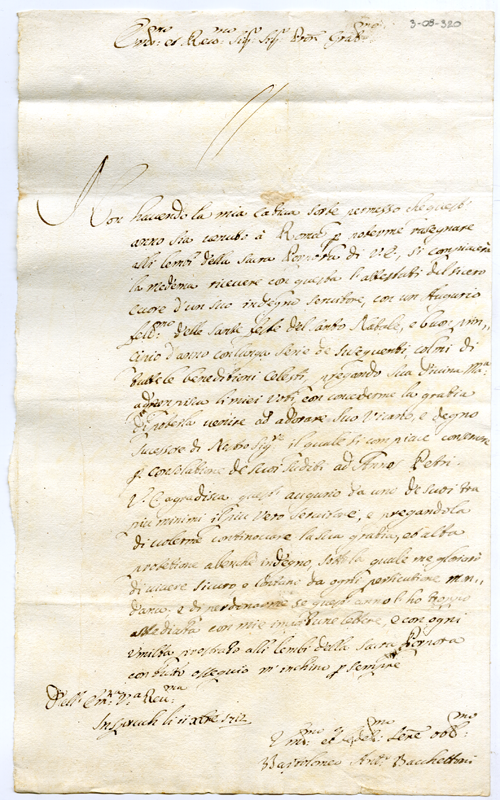 3-08-320
Em.mo et Rev.mo Sig.r Sig.r Pron Gratio.mo
Non havendo la mia cativa sorte permesso che quest
anno sia venuto à Roma p poterme rasegnare
alli lembi della sacra Porpora di V.E., si compiacerà
la medema ricevere con questa l'attestati del vero
cuore d'un suo indegno servitore, con un Augurio
felic.mo delle sante feste del santo Natale, e buon prin=
cipio d'anno con lunga serie de sucequenti colmi di
tutte le beneditioni celesti, pregando Sua Divina M.tà
li miei voti con concederme la gratia
di poterla venire ad adorare suo Vicario, e degno
sucessore di Nostro Sig.re il quale si compiace conservare
p consolatione de suoi fedeli ad Annos Petri.
V.E. agradisca questo augurio da uno de suoi tra
più minimi il più vero servitore, e pregandola
di volerme continovare la sua gratia, et alta
protetione abenchè indegno, sotto la quale me glorierò
di vivere sicuro e lontano da ogni persicutione mon=
dana, e di perdonarme se quest anno l'ho troppo
attediata con mie importune lettere, e con ogni
umiltà prostrato alli lembi della sacra Porpora
con tutto ossequio m'inchino p sempre
Dell' Em.za V.ra Rev.ma
Inspruch li 11 xbre 1712
Umo: et Serre obb.mo
Bartolomeo Ant.o Bacchettoni